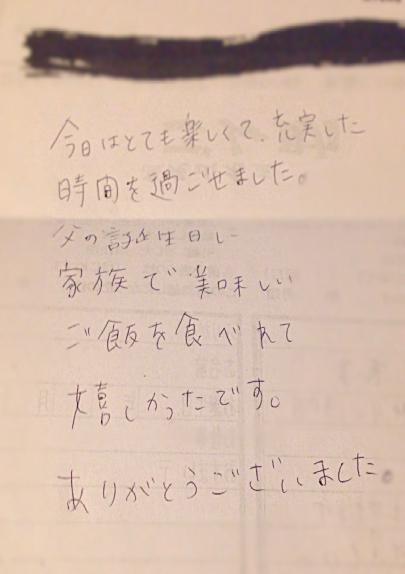 今日はとても楽しくて、充実した
時間を過ごせました。
父の誕生日に
家族で美味しい
ご飯を食べれて
嬉しかったです。
ありがとうございました。